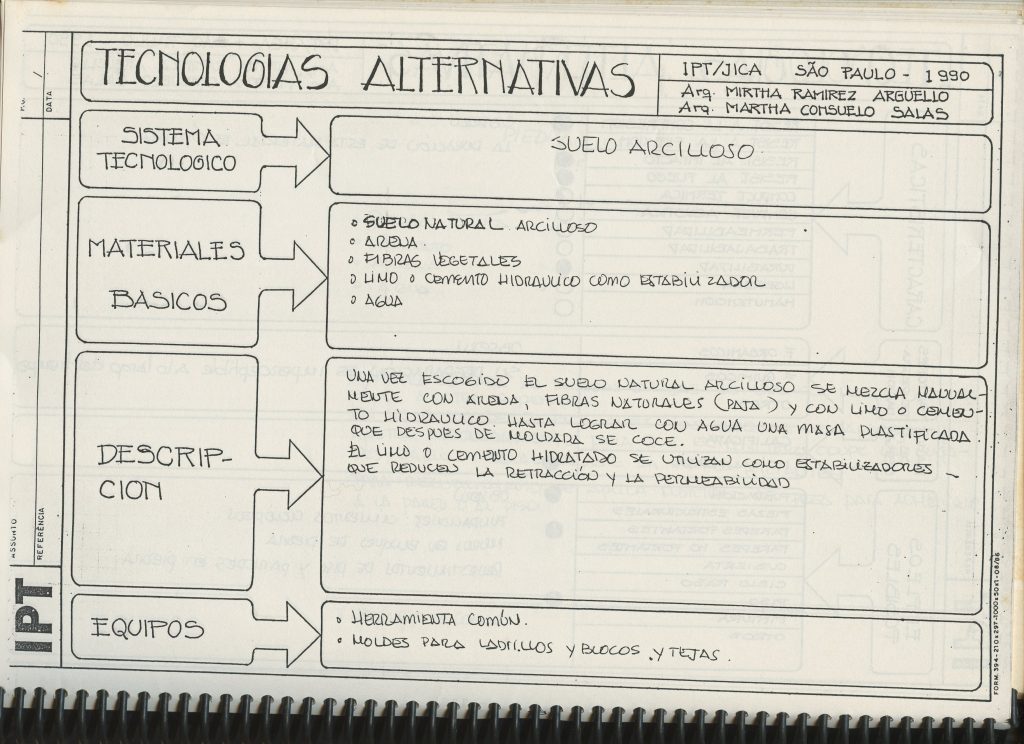 TECNOLOGIAS ALTERNATIVAS
IPT/JICA SÃO PAULO - 1990
Arq. MIRTHA RAMIREZ ARGUELLO
Arq. MARTHA CONSUELO SALAS
SISTEMA
TECNOLOGICO
SUELO ARCILLOSO.
MATERIALES
BASICOS
• SUELO NATURAL ARCILLOSO
• ARENA
• FIBRAS VEGETALES
• LIMO O CEMENTO HIDRAULICO COMO ESTABILIZADOR
• AGUA
DESCRIP-
CION
UNA VEZ ESCOGIDO EL SUELO NATURAL ARCILLOSO SE MEZCLA MANUAL-
MENTE CON ARENA, FIBRAS NATURALES (PAJA) Y CON LIMO O CEMEN-
TO HIDRAULICO HASTA LOGRAR CON AGUA UNA MASA PLASTIFICADA
QUE DESPUES DE MOLDARA SE COCE.
EL LIMO O CEMENTO HIDRATADO SE UTILIZAN COMO ESTABILIZADORES -
QUE REDUCEN LA RETRACCIÓN Y LA PERMEABILIDAD
EQUIPOS
• HERRAMIENTA COMÚN.
• MOLDES PARA LADRILLOS Y BLOCOS Y TEJAS.
DATA
ASSUNTO
REFERÊNCIA
IPT
FORM. 394-210x297-1000x50x1-06/86